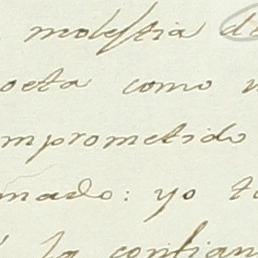 molestia de
oeta como
mprometido
mado: yo te
la confian